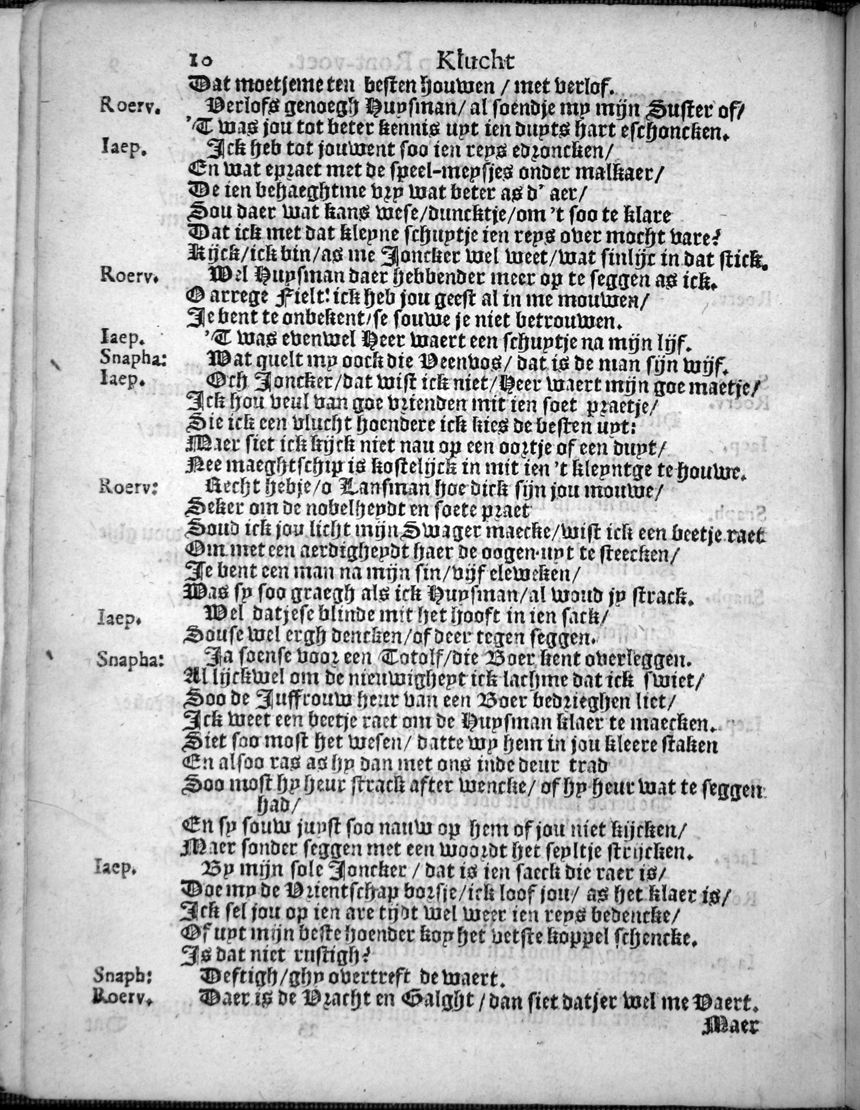 10 Klucht
Dat moetjeme ten besten houwen / met verlof.
Roerv. Verlofs genoegh Huysman / al soendje my mijn Suster of /
'T was jou tot beter kennis uyt ien duyts hart eschoncken.
Iaep. Ick heb tot jouwent soo ien reys edroncken /
En wat epraet met de speel-meysjes onder malkaer /
De ien behaeghtme vry wat beter as d' aer /
Sou daer wat kans wese / duncktje / om 't soo te klare
Dat ick met dat kleyne schuytje ien reys over mocht vare?
Kijck / ick bin / as me Joncker wel weet / wat sinlijc in dat stick.
Roerv. Wel Huysman daer hebbender meer op te seggen as ick.
O arrege Fielt! ick heb jou geest al in me mouwen /
Je bent te onbekent / se souwe je niet betrouwen.
Iaep. 'T was evenwel Heer waert een schuytje na mijn lijf.
Snapha: Wat quelt my oock die Veenvos / dat is de man sijn wijf.
Iaep. Och Joncker / dat wist ick niet / Heer waert mijn goe maetje /
Ick hou veul van goe vrienden mit ien soet praetje /
Sie ick een vlucht hoendere ick kies de besten uyt:
Maer siet ick kijck niet nau op een oortje of een duyt /
Nee maeghtschip is kostelijck in mit ien 't kleyntge te houwe.
Roerv: Recht hebje / o Lansman hoe dick sijn jou mouwe /
Seker om de nobelheydt en soete praet
Soud ick jou licht mijn Swager maecke / wist ick een beetje raet
Om met een aerdigheydt haer de oogen uyt te steecken /
Je bent een man na mijn sin / vijf eleweken /
Was sy soo graegh als ick Huysman / al woud jy strack.
Iaep. Wel datjese blinde mit het hooft in ien sack /
Souse wel ergh dencken / of deer tegen seggen.
Snapha: Ja soense voor een Totolf / die Boer kent overleggen.
Al lijckwel om de nieuwigheyt ick lachme dat ick swiet /
Soo de Juffrouw heur van een Boer bedrieghen liet /
Ick weet een beetje raet om de Huysman klaer te maecken.
Siet soo most het wesen / datte wy hem in jou kleere staken
En alsoo ras as hy dan met ons inde deur trad
Soo most hy heur strack after wencke / of hy heur wat te seggen
had /
En sy souw juyst soo nauw op hem of jou niet kijcken /
Maer sonder seggen met een woordt het seyltje strijcken.
Iaep. By mijn sole Joncker / dat is ien saeck die raer is /
Doe my de Vrientschap borsje / ick loof jou / as het klaer is /
Ick sel jou op ien are tijdt wel weer ien reys bedencke /
Of uyt mijn beste hoender koy het vetste koppel schencke.
Is dat niet rustigh?
Snaph: Deftigh / ghy overtreft de waert.
Roerv. Daer is de Vracht en Galght / dan siet datjer wel me Vaert.
Maer